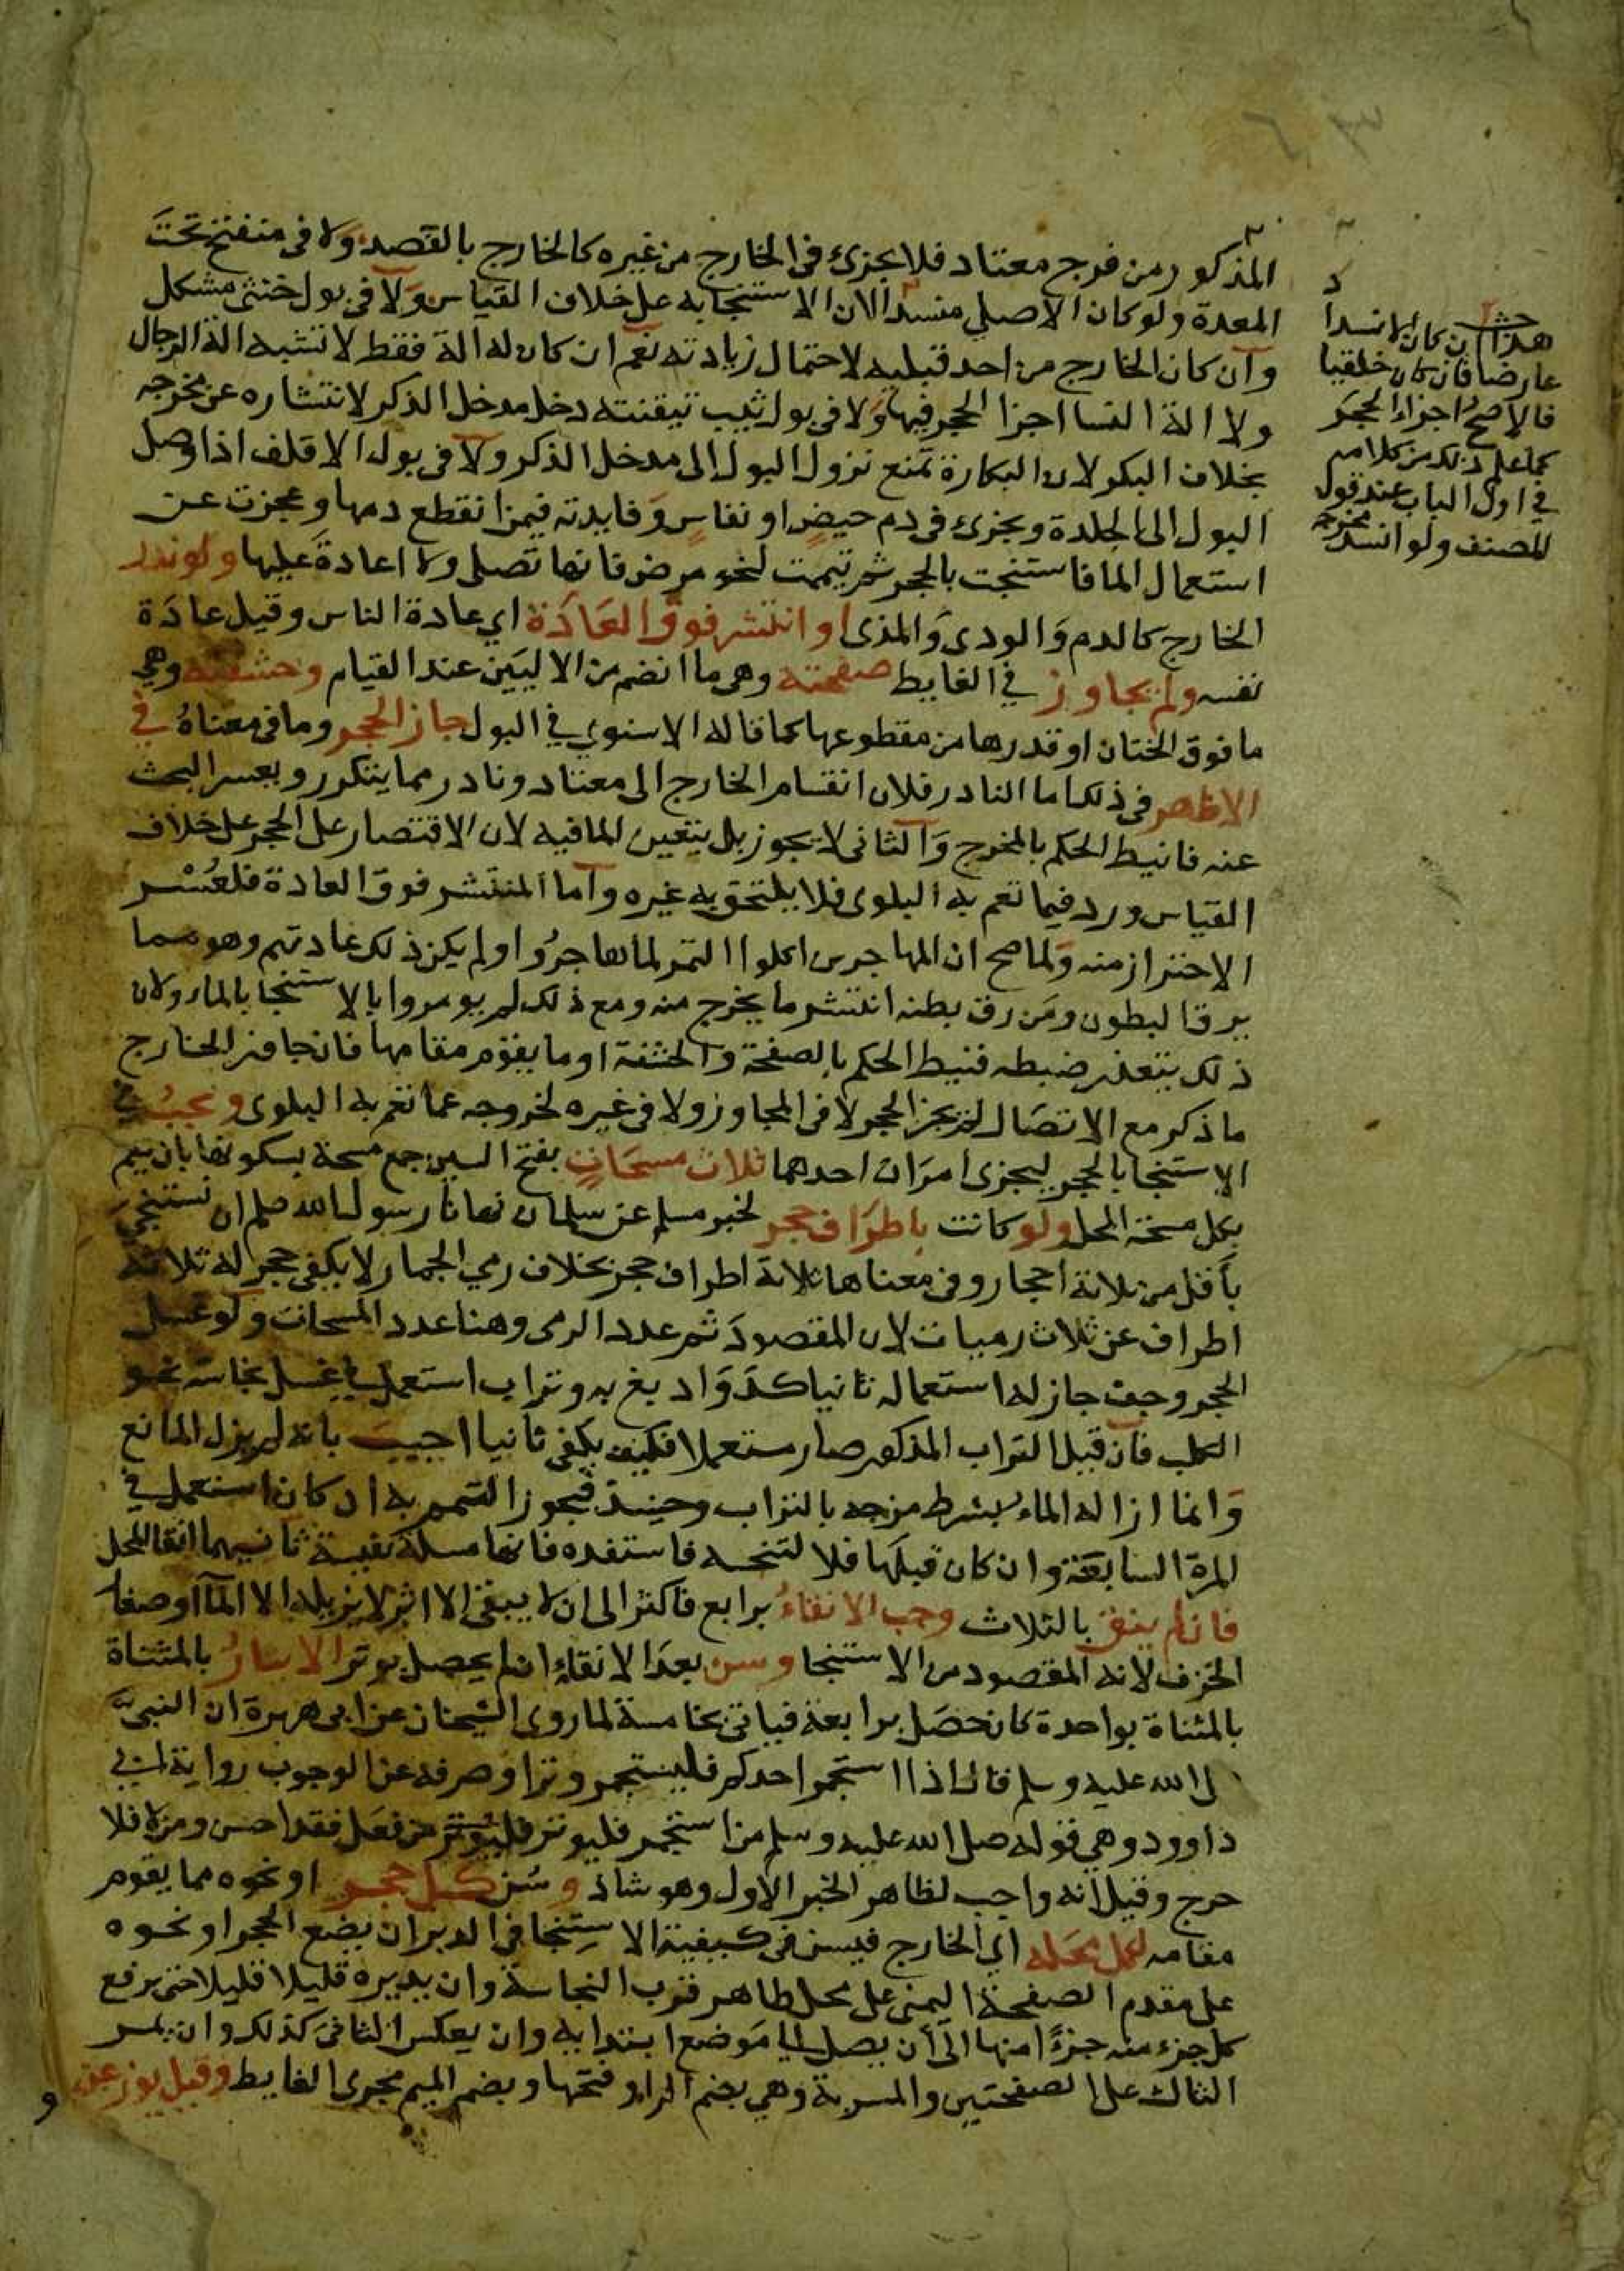 المذكور من فرج معتاد فلا يجزئ في الخارج من غيره كالخارج بالفصد ولا في منفتح تحت
المعدة ولو كان الاصلي منسدا لان الاستنجا به على خلاف القياس ولا في بول خنثى مشكل
وان كان الخارج من احد قبليه لاحتمال زيادته نعم ان كان له الة فقط لا تشبه الة الرجال
ولا الة النسا اجزا الحجر فيها ولا في بول ثيب تيقنته دخل مدخل الذكر لانتشاره عن مخرجه
بخلاف البكر لان البكارة تمنع نزول البول الى مدخل الذكر ولا في بول الاقلف اذا وصل
البول الى الجلدة ويجزئ في دم حيض او نفاس وفايدته فيمن انقطع دمها وعجزت عن
استعمال الما فاستنجت بالحجر ثم تيممت لنحو مرض فانها تصلي ولا اعادة عليها ولو ندر
الخارج كالدم والودى والمذى او انتشر فوق العادة اي عادة الناس وقيل عادة
نفسه ولم يجاوز في الغايط صفحته وهي ما انضم من الاليين عند القيام وحشفته وهي
ما فوق الختان او قدرها من مقطوعها كما قاله الاسنوي في البول جاز الحجر وما في معناه في
الاظهر في ذلك اما النادر فلان انقسام الخارج الى معتاد ونادر مما يتكرر ويعسر البحث
عنه فانيط الحكم بالمخرج والثاني لا يجوز بل يتعين الما فيه لان الاقتصار على الحجر على خلاف
القياس ورد فيما تعم به البلوى فلا يلتحق به غيره واما المنتشر فوق العادة فلعسر
الاحتراز منه ولما صح ان المهاجرين اكلوا التمر لما هاجروا ولم يكن ذلك عادتهم وهو مما
يرق البطون ومن رق بطنه انتشر ما يخرج منه ومع ذلك لم يومروا بالاستنجا بالماء ولان
ذلك يتعذر ضبطه فنيط الحكم بالصفحة والحشفة او ما يقوم مقامها فان جاوز الخارج
ما ذكر مع الاتصال لم يجز الحجر لا في المجاوز ولا في غيره لخروجه عما تعم به البلوى ويجب في
الاستنجا بالحجر ليجزى امران احدهما ثلاث مسحات بفتح السين جمع مسحة بسكونها بان يعم
بكل مسحة المحل ولو كانت باطراف حجر لخبر مسلم عن سلمان نهانا رسول الله صلم ان نستنجي
باقل من ثلاثة احجار وفي معناها ثلاثة اطراف حجر بخلاف رمي الجمار لا يكفي حجر له ثلاثة
اطراف عن ثلاث رميات لان المقصود ثم عدد الرمي وهنا عدد المسحات ولو غسل
الحجر وجف جاز له استعماله ثانيا كدواء دبغ به وتراب استعمل في غسل نجاسة نحو
الكلب فان قيل التراب المذكور صار مستعملا فكيف يكفي ثانيا اجيب بانه لم يزل المانع
وانما ازاله الماء بشرط مزجه بالتراب وحينئذ فيجوز التيمم به ان كان استعمل في
المرة السابعة وان كان قبلها فلا لتنجسه فاستفده فانها مسلة نفيسة ثانيهما انقا المحل
فان لم ينق بالثلاث وجب الانقاء برابع فاكثر الى ان لا يبقى الا اثر لا يزيله الا الماء او صغار
الخزف لانه المقصود من الاستنجا وسن بعد الانقاء ان لم يحصل بوتر الايتار بالمثناة
بالمثناة بواحدة كان حصل برابعة فياتي بخامسة لما روى الشيخان عن ابي هريرة ان النبي
لى الله عليه وسلم قال اذا استجمر احدكم فليستجمر وترا وصرفه عن الوجوب رواية لابي
داوود وهي قوله صلى الله عليه وسلم من استجمر فليوتر فليوتر من فعل فقد احسن ومن لا فلا
حرج وقيل انه واجب لظاهر الخبر الاول وهو شاذ وسن كل حجر او نحوه مما يقوم
مقامه لكل محله اي الخارج فيسن في كيفية الاستنجا في الدبر ان يضع الحجر او نحوه
على مقدم الصفحة اليمنى على محل طاهر قرب النجاسة وان يديره قليلا قليلا حتى يرفع
كل جزء منه جزءا منها الى ان يصل الى موضع ابتدا به وان يعكس الثاني كذلك وان يمر
الثالث على الصفحتين والمسربة وهي بضم الراء وفتحها وبضم الميم مجرى الغايط وقيل يوزعن
و
حش
هذا ان كان الانسداد
عارضا فان كان خلقيا
فالاصح اجزاء الحجر
كما علم ذلك من كلامه
في اول الباب عند قول
المصنف ولو انسد مخرجه